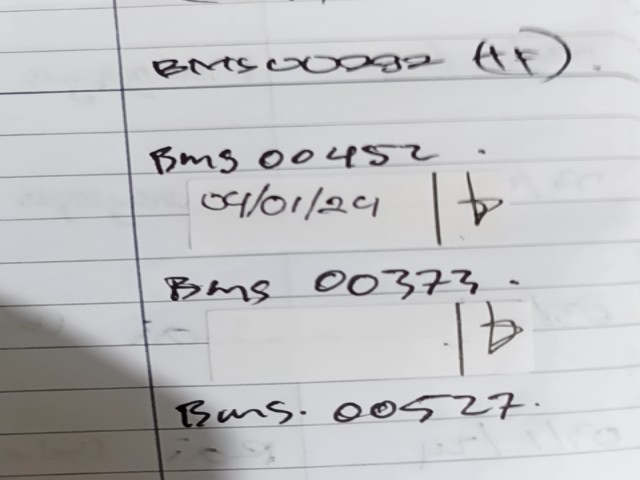 BMS00282 (HF).
Bms 00452.
04/01/24 |
Bms 00373.
Bms. 00527.